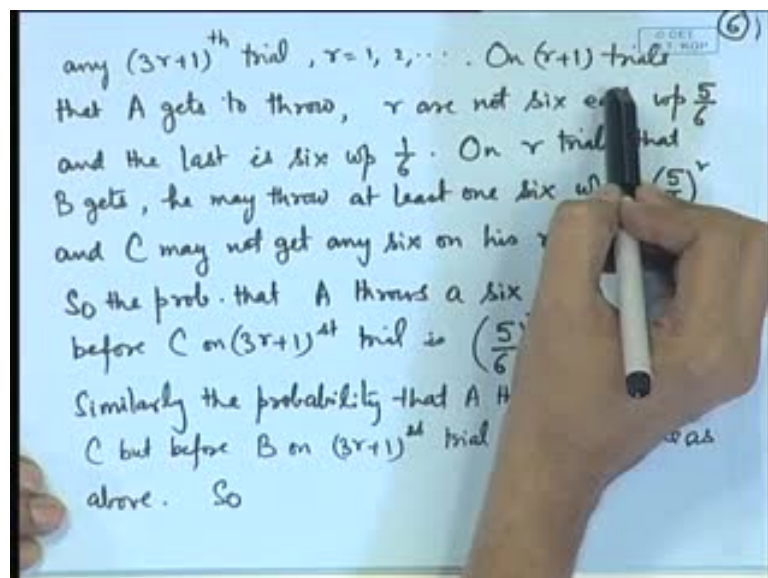 6
© CET
I.I.T. KGP
any (3r+1)^th trial, r=1, 2, .... On (r+1) trials
that A gets to throw, r are not six wp 5/6
and the last is six wp 1/6. On r trial that
B gets, he may throw at least one six (5/6)^r
and C may not get any six on his
So the prob. that A throws a six
before C on (3r+1)^st trial is (5/6)
Similarly the probability that A
C but before B on (3r+1)^st trial as
above. So